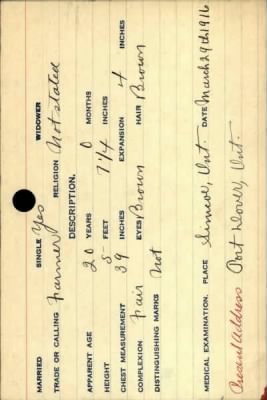 MARRIED SINGLE Yes WIDOWER
TRADE OR CALLING Farmer RELIGION Not stated
DESCRIPTION.
APPARENT AGE 20 YEARS 0 MONTHS
HEIGHT 5 FEET 7 1/4 INCHES
CHEST MEASUREMENT 39 INCHES EXPANSION 4 INCHES
COMPLEXION Fair EYES Brown HAIR Brown
DISTINGUISHING MARKS Not
MEDICAL EXAMINATION. PLACE Simcoe, Ont. DATE March 29th 1916
Present Address Port Dover, Ont.